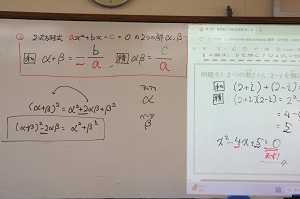 Q 2次方程式 ax²+bx+c=0 の2つの解 α, β
和 α+β = -b/a 積 αβ = c/a
(α+β)² = α²+2αβ+β²
(α+β)²-2αβ = α²+β²
α
β
2つの数2+i, 2-i
和 (2+i)+(2-i)
積 (2+i)(2-i) = 2²
= 4-
= 5
x²-4x+5=0